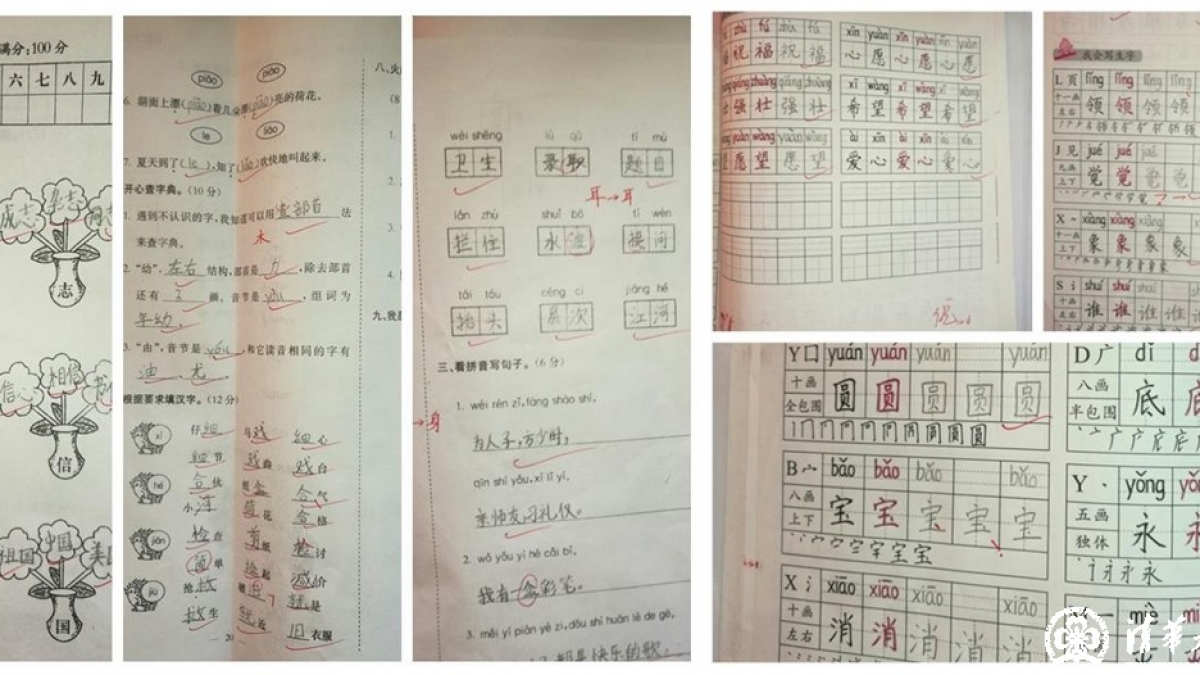 满分：100 分
六 七 八 九
成志
志
相信
信
祖国
中国
国
piāo
piào
6. 湖面上漂(piāo)着几朵漂(piào)亮的荷花。
le
liǎo
7. 夏天到了(le)，知了(liǎo)欢快地叫起来。
开心查字典。(10 分)
1. 遇到不认识的字，我知道可以用查部首法
来查字典。
木
2. “幼”，左右结构，部首是力，除去部首
还有 2 画，音节是yòu，组词为
年幼。
3. “由”，音节是yóu，和它读音相同的字有
迪、尤。
根据要求填汉字。(12 分)
xì
仔细 马戏 细心
细节 戏曲 戏白
hé
合伙
小河 荷花
jiǎn
检查 剪纸 检讨
简单 捡起 减价
jiù
救生 就近 旧衣服
20
wèi shēng lù qǔ tí mù
卫生 录取 题目
耳→耳
lán zhù shuǐ bō tí wèn
拦住 水波 提问
tái tóu céng cì jiāng hé
抬头 层次 江河
三、看拼音写句子。(6 分)
1. wéi rén zǐ, fāng shào shí,
→身
为人子，方少时，
qīn shī yǒu, xí lǐ yí.
亲师友，习礼仪。
2. wǒ yǒu yì hé cǎi bǐ.
我有一盒彩笔。
3. měi yí piàn yè zi, dōu shì huān lè de gē.
都是快乐的歌。
zhù fú zhù fú
祝福祝福
qiáng zhuàng qiáng zhuàng
强壮强壮
yuàn wàng yuàn wàng
愿望愿望
xīn yuàn xīn yuàn yuàn
心愿心愿愿
xī wàng xī wàng xī wàng
希望希望希望
ài xīn ài xīn ài xīn
爱心爱心爱心
优
我会写生字
L 页 lǐng lǐng lǐng lǐng
十一画
左右
领 领 领 领
J 见 jué jué jué
九画
上下
觉 觉 觉 觉
X xiàng xiàng xiàng
十一画
上下
象 象 象 象
S 讠 shuí shuí
十画
左右
谁 谁 谁 谁
Y 囗 yuán yuán yuán yuán
十画
全包围
圆 圆 圆 圆 圆
D 广 dǐ
八画
半包围
底
B 宀 bǎo bǎo bǎo bǎo
八画
上下
宝 宝 宝 宝 宝
Y 丶 yǒng
五画
独体
永
X 氵 xiāo xiāo xiāo xiāo
十画
左右
消 消 消 消 消
miè
清华